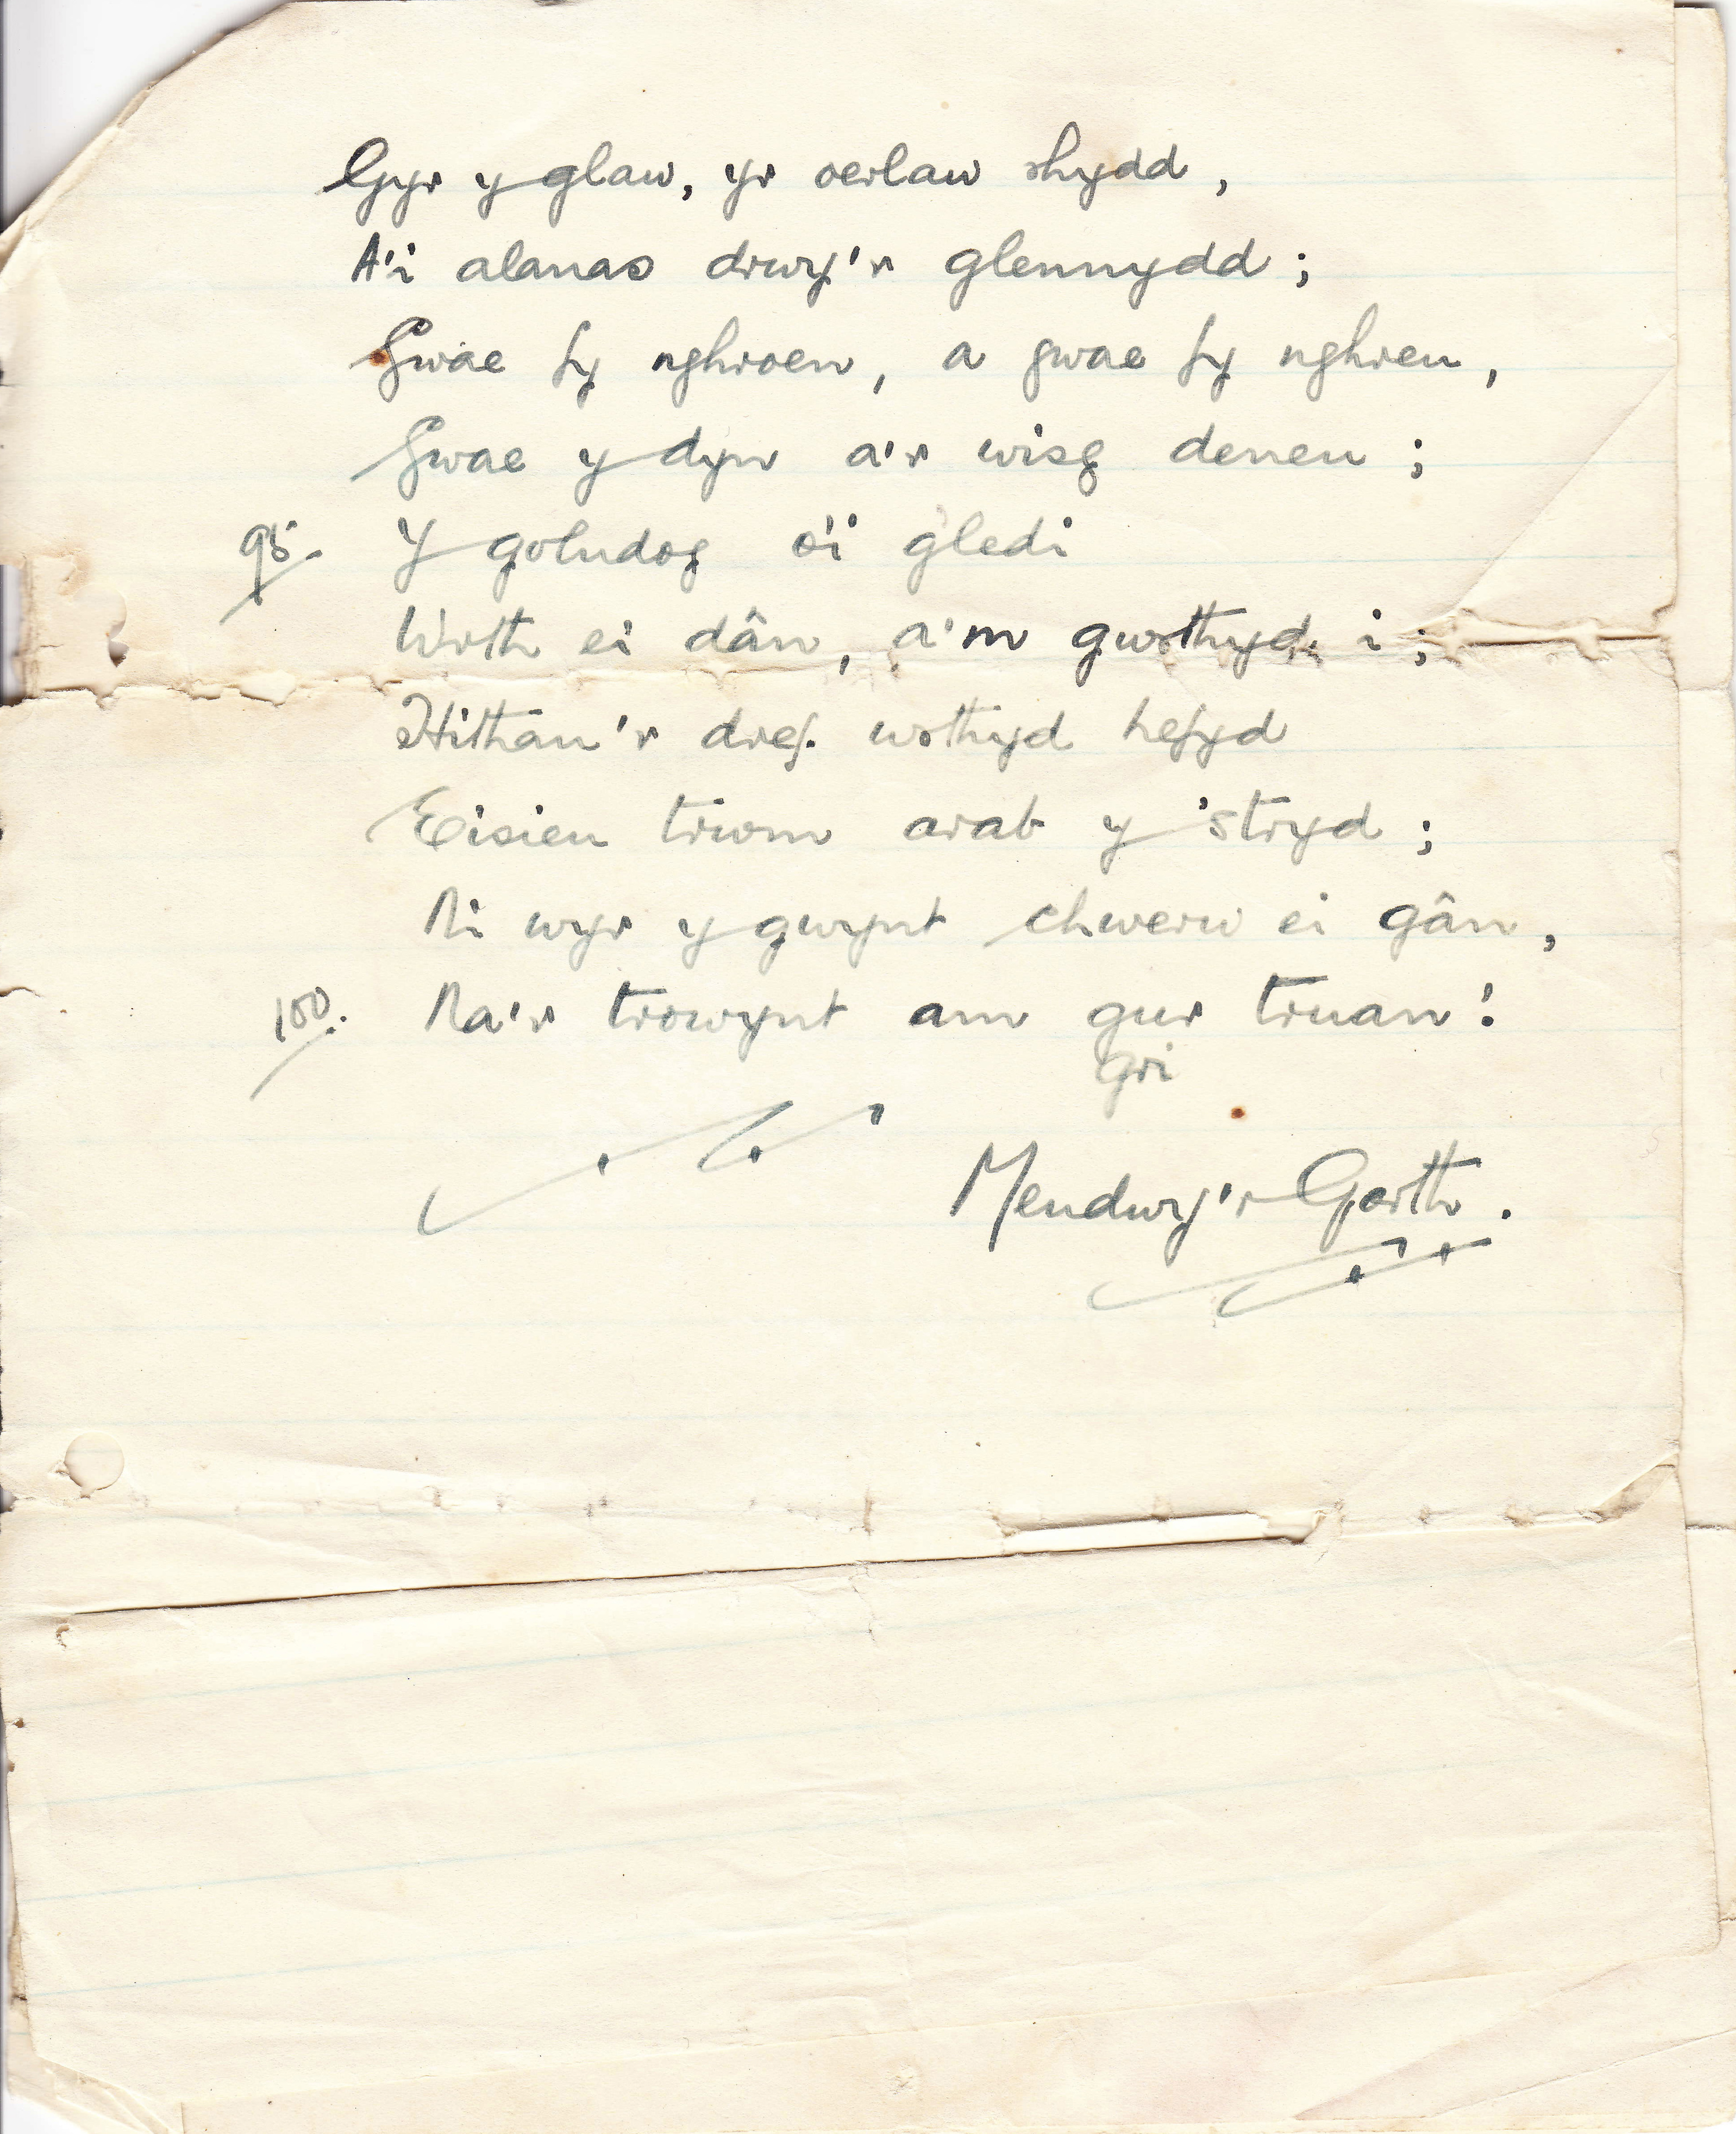 Gyr y glaw, yr oerlaw rhydd,
A'i alanas drwy'r glennydd;
Gwae fy nghroen, a gwae fy nghreu,
Gwae y dyn a'r wisg deneu;
95. Y goludog o'i gledi
Wrth ei dân, a'm gwrthyd i;
Hithau'r dref wrthyd hefyd
Eisieu trwm arab y 'stryd;
Ni wyr y gwynt chwerw ei gân,
100. Na'r trowynt am gur truan!
gri
Mendwy'r Garth.